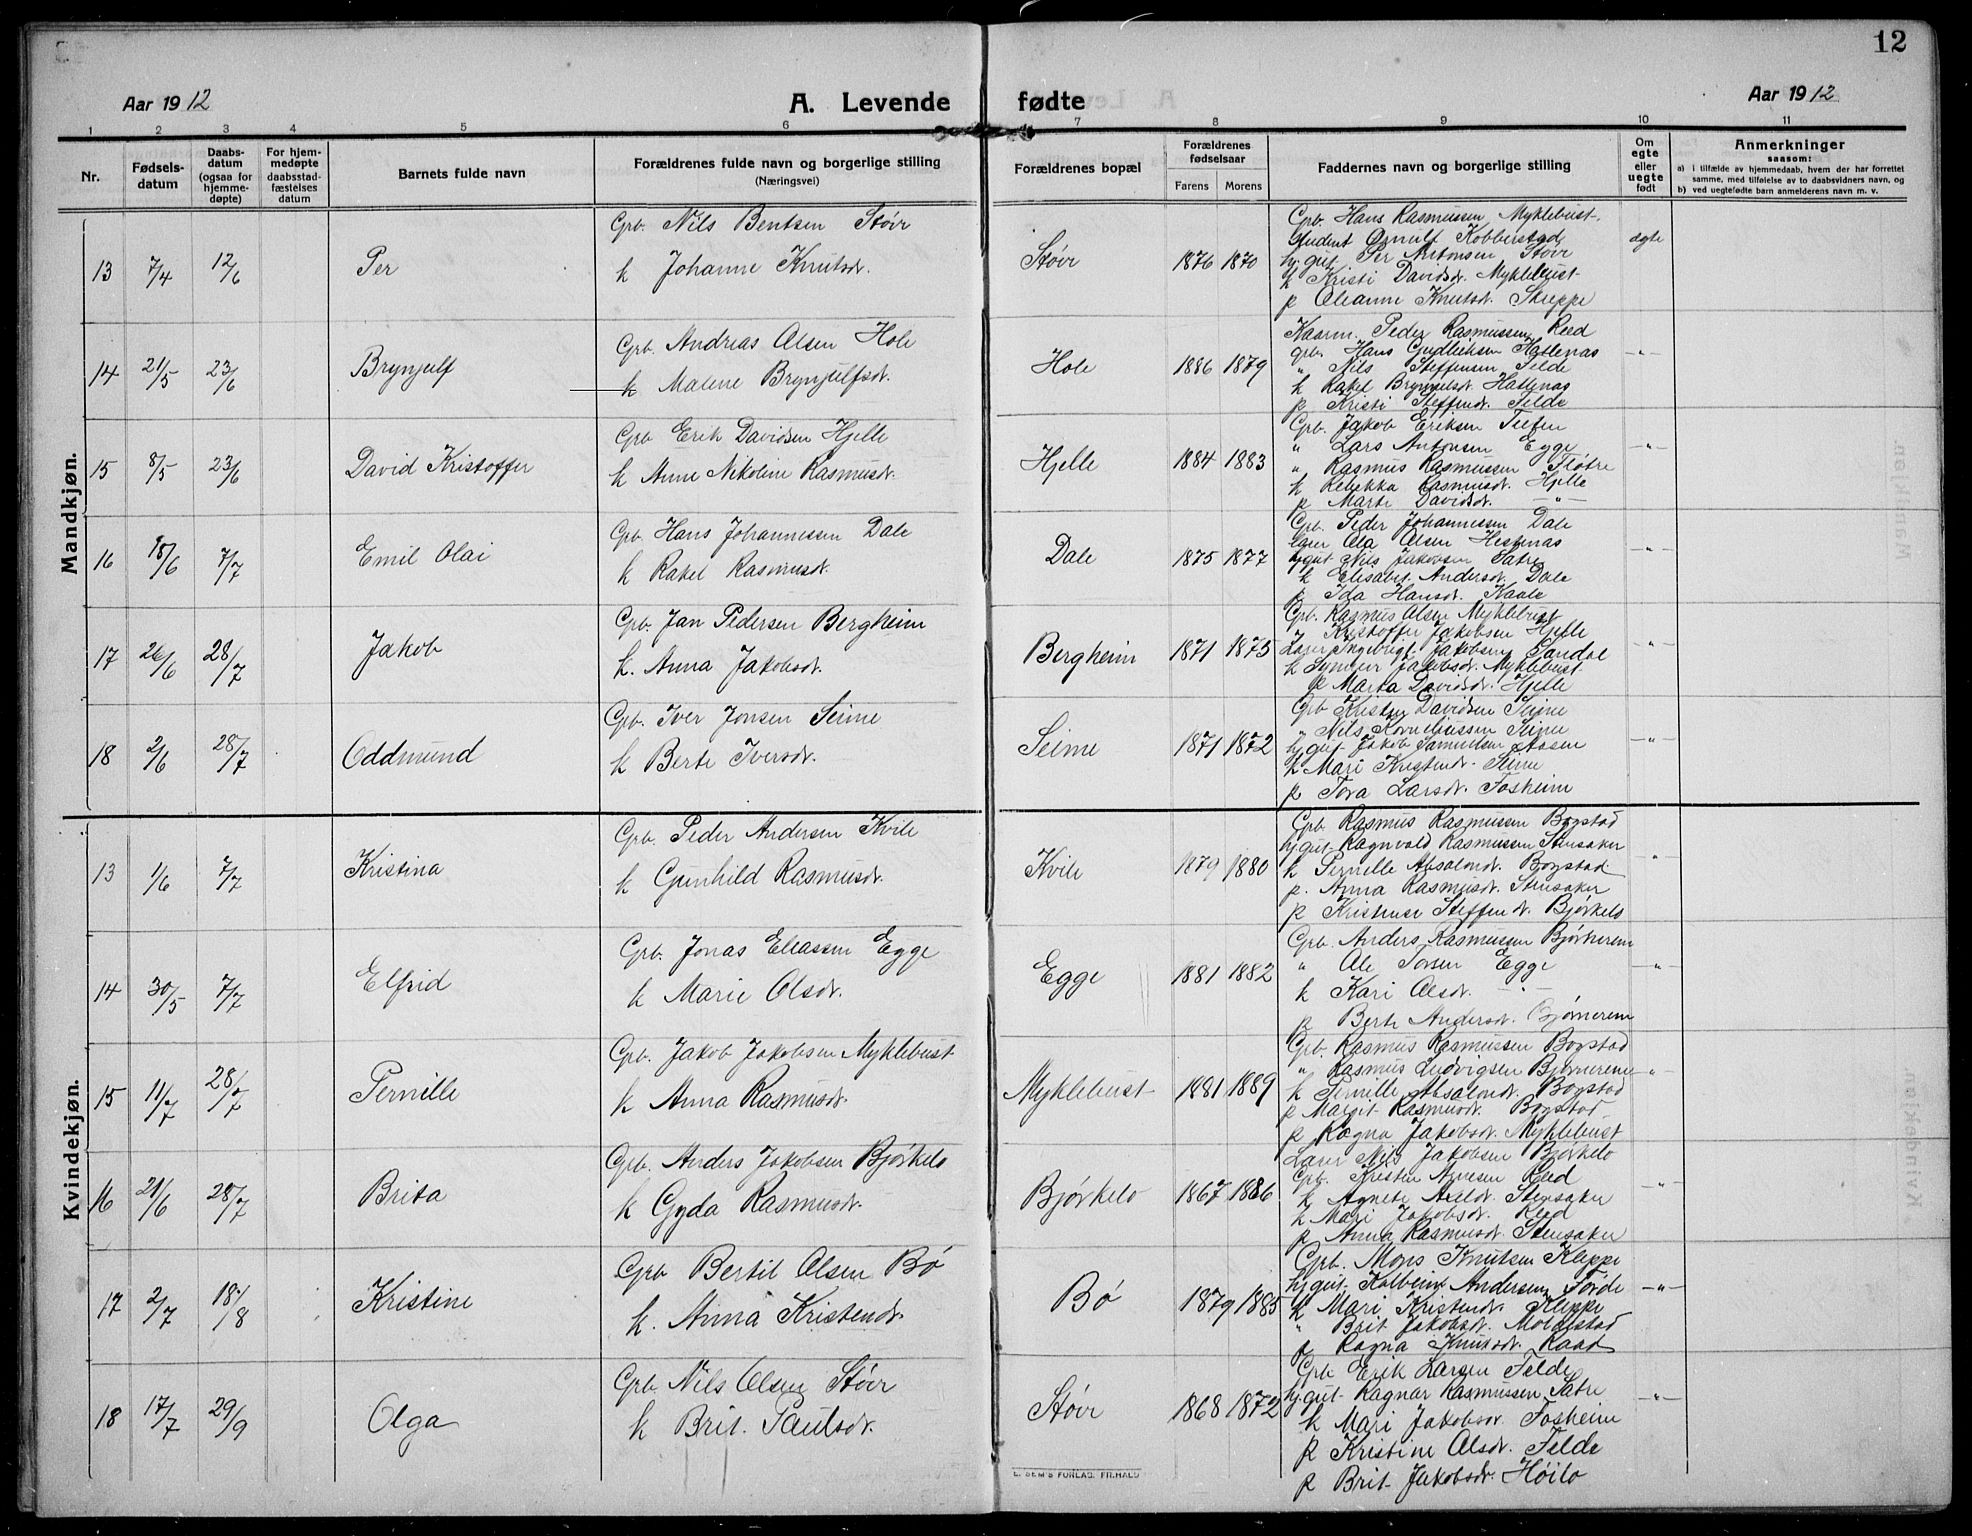 12
Aar 1912 A. Levende fødte Aar 1912
1 2 3 4 5 6 7 8 9 10 11
Nr. Fødselsdatum Daabsdatum (ogsaa for hjemmedøpte) For hjemmedøpte daabsstadfæstelses datum Barnets fulde navn Forældrenes fulde navn og borgerlige stilling (Næringsvei) Forældrenes bopæl Forældrenes fødselsaar Farens Morens Faddernes navn og borgerlige stilling Om egte eller uegte født Anmerkninger saasom: a) i tilfælde av hjemmedaab, hvem der har forrettet samme, med tilføielse av to daabsvidners navn, og b) ved uegtefødte barn anmelderens navn m. v.
Mandkjøn.
13 7/4 12/6 Per Grb. Nils Bentsen Støir
k Johanne Knutsdr. Støir 1876 1870 ægte
Grb. Hans Rasmussen Myklebust.
student Ørnulf Kobberstad
hj.gut Per Antonsen Støir
k Kristi Davidsdr. Myklebust
p Oleanne Knutsdr. Skreppe
14 21/5 23/6 Brynjulf Grb. Andreas Olsen Hole
k Malene Brynjulfsdr. Hole 1886 1879 -"-
Kasern. Peder Rasmussen Reed
grb. Hans Gudleiksen Hattenæs
" Nils Steffensen Felde
k Rakel Brynjelsdr. Hattenæs
p Kristi Steffendr. Felde
15 8/5 23/6 David Kristoffer Grb Erik Davidsen Hjelle
k Anne Nikoline Rasmusdr. Hjelle 1884 1883 -"-
Grb. Jakob Eriksen
" Lars Antonsen Egge
" Rasmus Rasmussen Fløtre
k Rebekka Rasmusdr. Hjelle
p Marte Davidsdr. -"-
16 18/6 7/7 Emil Olai Grb. Hans Johannessen Dale
k Rakel Rasmusdr. Dale 1875 1877 -"-
Grb. Peder Johannessen Dale
lærer Ola Olsen Hestenæs
hj.gut Nils Jakobsen Sætre
k Elisabet Andersdr. Dale
p Ida Hansdr. Kaale
17 26/6 28/7 Jakob Grb. Jan Pedersen Bergheim
k. Anna Jakobsdr. Bergheim 1871 1875 -"-
Grb. Rasmus Olsen Myklebust
" Kristoffer Jakobsen Hjelle
Lærer Ingebrigt Jakobsen Sandal
k Synneir Jakobsdr. Myklebust
p Marta Davidsdr. Hjelle
18 2/6 28/7 Oddmund Grb. Iver Jonsen Seime
k Berte Iversdr. Seime 1871 1872 -"-
Grb Kristen Davidsen Seime
" Nils Korneliussen Seime
hj.gut Jakob Samuelsen Aasen
k Mari Kristendr. Seime
p Tora Larsdr. Fosheim
Kvindekjøn.
13 1/6 7/7 Kristina Grb. Peder Andersen Kvile
k Gunhild Rasmusdr. Kvile 1879 1880 "
Grb Rasmus Rasmussen Bogstad
hj.gut Ragnvald Rasmussen Stensaker
k Pernille Absalondr. Bogstad
p. Anna Rasmusdr. Stensaker
p Kristense Steffendr. Bjørkelo
14 30/5 7/7 Elfrid Grb. Jonas Eliassen Egge
k Marie Olsdr. Egge 1881 1882 -"-
Grb. Anders Rasmussen Bjørnerem
" Ole Torsen Egge
k Kari Olsdr. -"-
p Berte Andersdr. Bjørnerem
15 11/7 28/7 Pernille Grb. Jakob Jakobsen Myklebust
k Anna Rasmusdr. Myklebust 1881 1889 "
Grb. Rasmus Rasmussen Bogstad
" Rasmus Ludvigsen Bjørnerem
k Pernille Absalondr. Bogstad
p Margit Rasmusdr. Bogstad
p Ragna Jakobsdr. Myklebust
16 21/6 28/7 Brita Grb. Anders Jakobsen Bjørkelo
k Gyda Rasmusdr. Bjørkelo 1867 1886 "
Lærer Nils Jakobsen Bjørkelo
Grb. Kristen Arnesen Reed
k Agnete Axeldr. Stensaker
k Mari Jakobsdr. Reed
p Anna Rasmusdr. Stensaker
17 2/7 18/8 Kristine Grb Bertil Olsen Bø
k. Anna Kristendr. Bø 1879 1885 -"-
Grb. Mons Knutsen Kleppe
hj.gut Kolbein Andersen Førde
k Mari Kristendr. Kleppe
" Brit Jakobsdr. Moldestad
p Ragna Knutsdr. Raad
18 17/7 29/9 Olga Grb Nils Olsen Støir
k Brit. Paulsdr. Støir 1868 1872 "
Grb Erik Larsen Felde
hj.gut Ragnar Rasmussen Sætre
k Mari Jakobsdr Fosheim
p Kristine Olsdr. Felde
p Brit Jakobsdr. Høilo
E. SEM'S FORLAG, FR.HALD